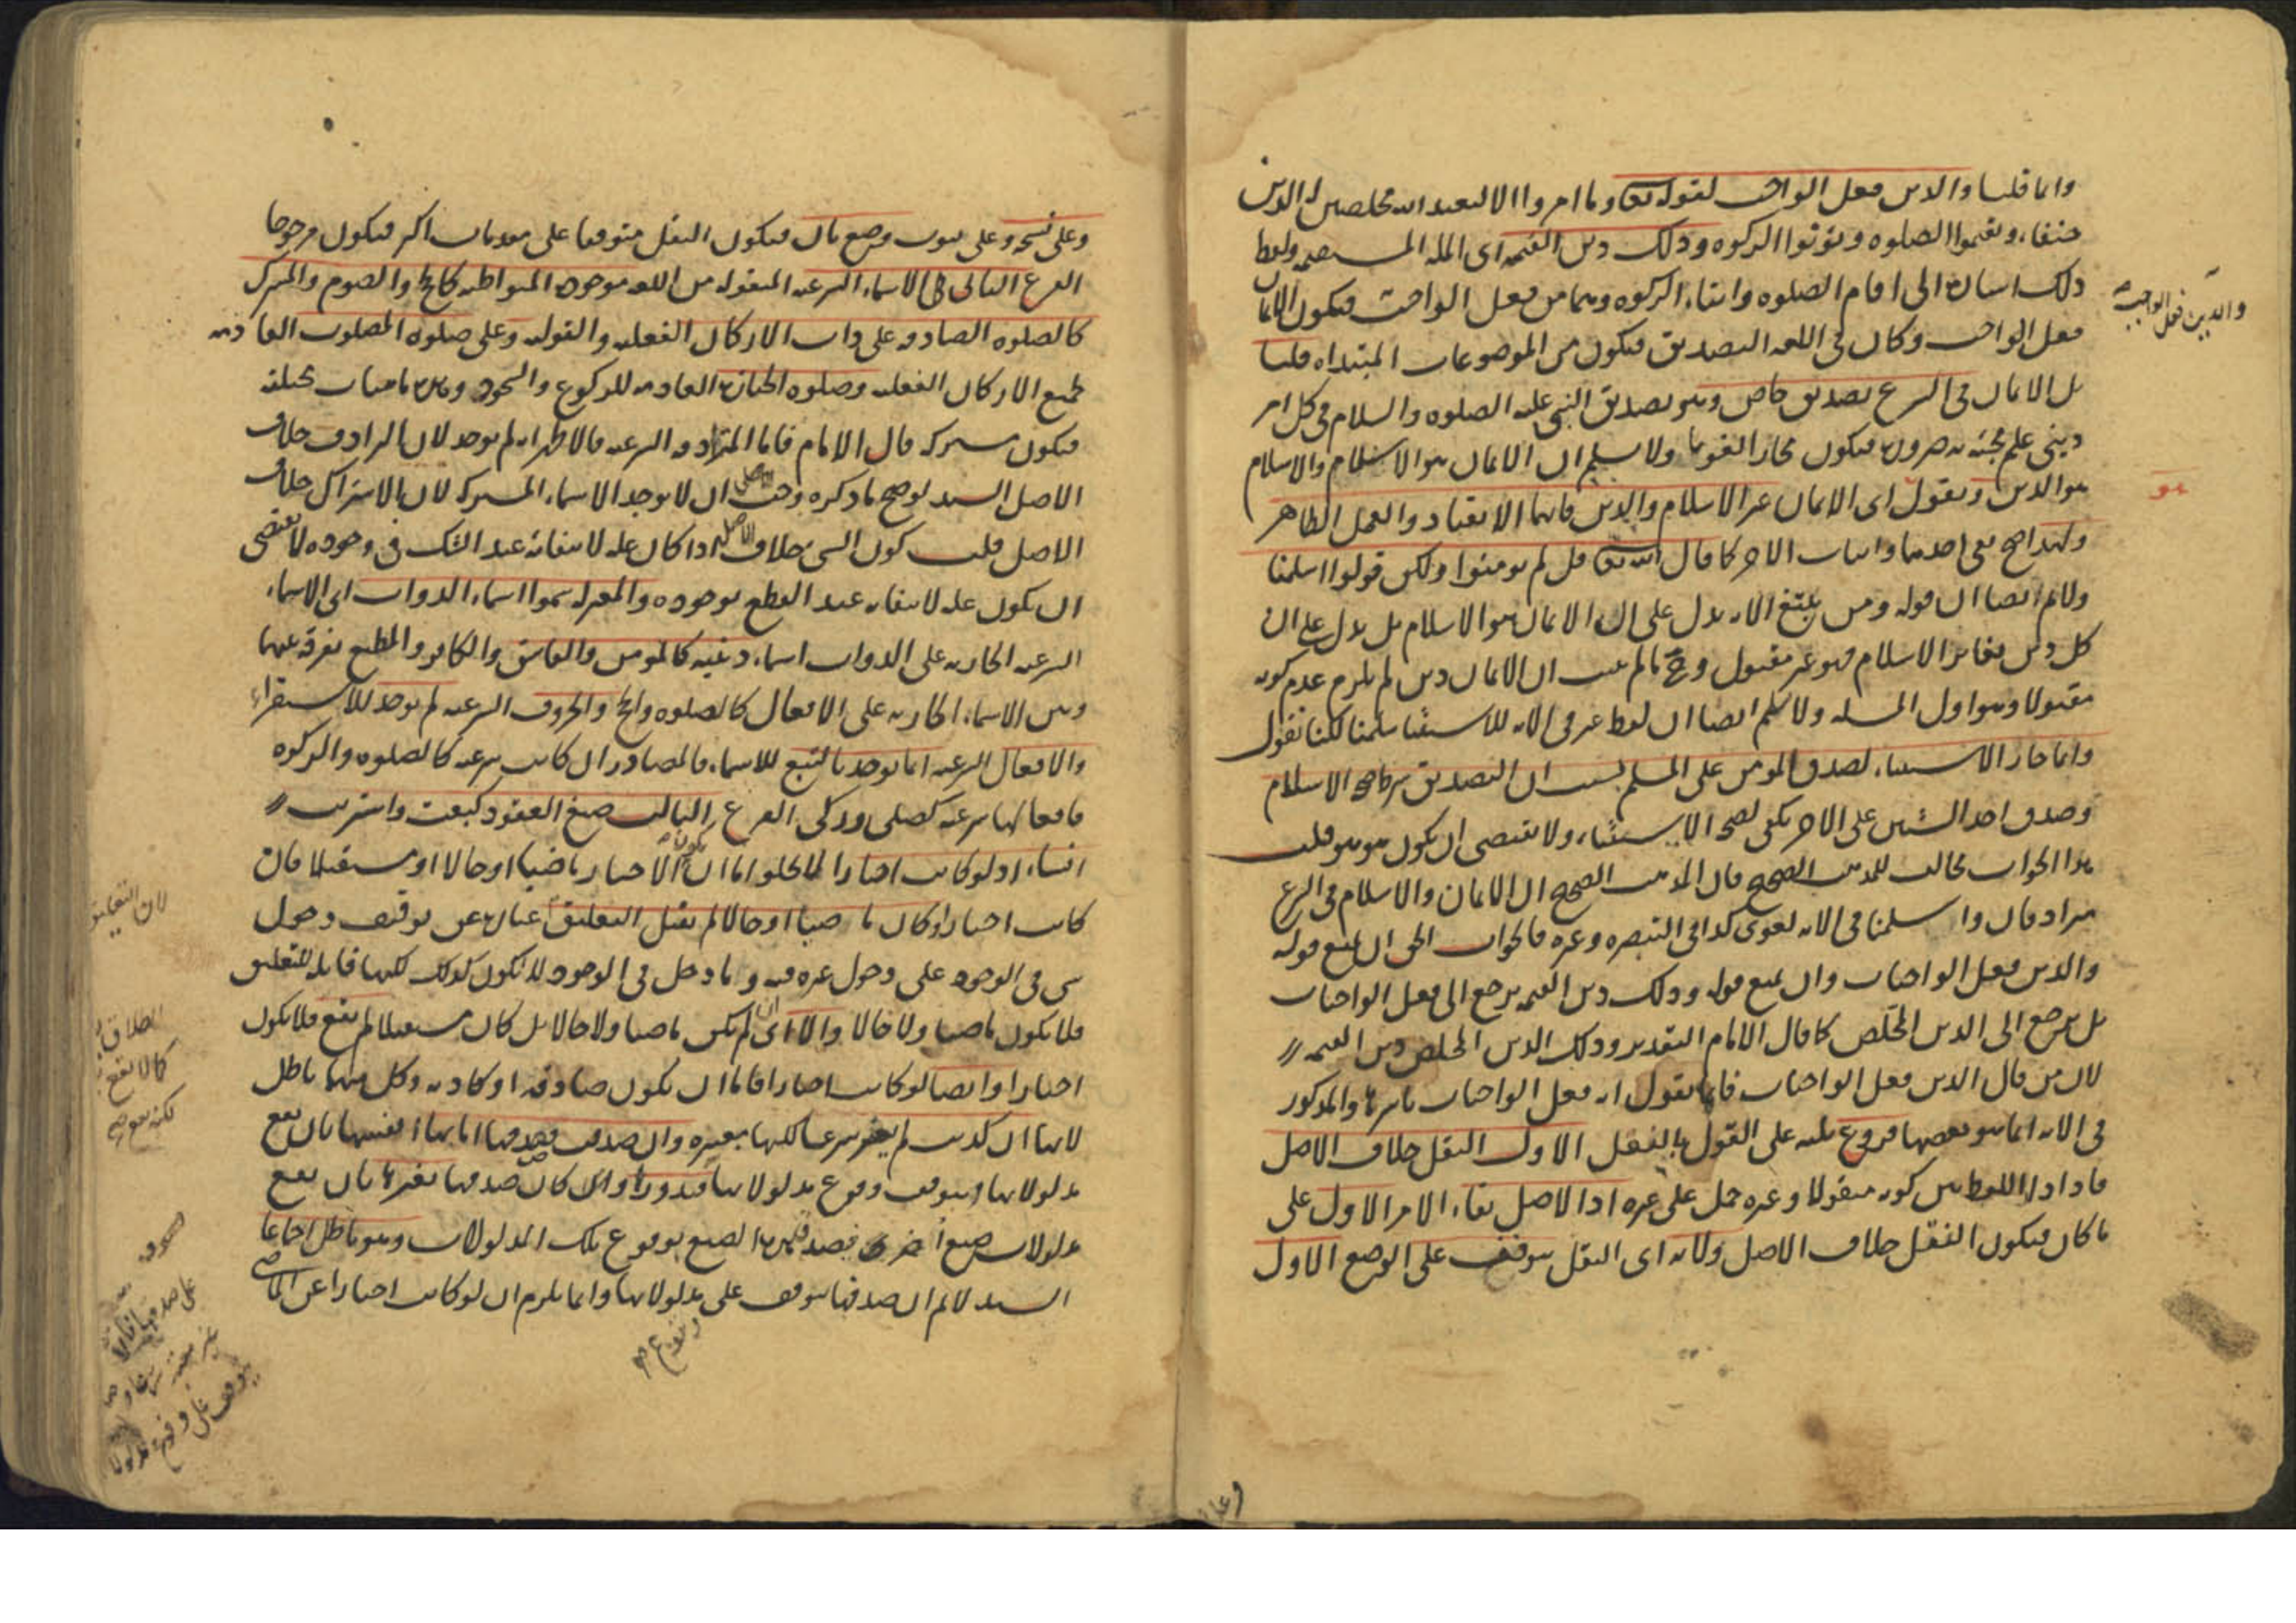 وانما قلنا والدين فعل الواجب لقوله تعالى وما امروا الا ليعبدوا الله مخلصين له الدين
حنفاء ويقيموا الصلوه ويؤتوا الزكوه وذلك دين القيمه اى المله المستقيمه ولفظ
ذلك اشاره الى اقام الصلوه وايتاء الزكوه وهما من فعل الواجب فيكون الايمان
فعل الواجب وكان فى اللغه التصديق فيكون من الموضوعات المبتداه قلنا
بل الايمان فى الشرع تصديق خاص وهو تصديق النبى عليه الصلوه والسلام فى كل امر
دينى علم مجيئه به ضروره فيكون مجازا لغويا ولا نسلم ان الايمان هو الاسلام والاسلام
هو الدين ونقول اى الايمان غير الاسلام والدين فانهما الانقياد والعمل الظاهر
ولهذا صح نفى احدهما واثبات الاخر كما قال الله تعالى قل لم تومنوا ولكن قولوا اسلمنا
ولا نم ايضا ان قوله ومن يبتغ الايه يدل على ان الايمان هو الاسلام بل يدل على ان
كل دين يغاير الاسلام فهو غير مقبول وح ما لم يثبت ان الايمان دين لم يلزم عدم كونه
مقبولا وهو اول المسله ولا نسلم ايضا ان لفظ غير فى الايه للاستثنا سلمنا لكنا نقول
وانما جاز الاستثناء لصدق المومن على المسلم بسبب ان التصديق شرط صحه الاسلام
وصدق احد الشيين على الاخر يكفى لصحه الاستثناء ولا يقتضى ان يكون هو هو قلت
هذا الجواب مخالف للمذهب الصحيح فان المذهب الصحيح ان الايمان والاسلام فى الشرع
مرادفان واسلمنا فى الايه لغوى كذا فى التبصره وغيره فالجواب الحق ان يمنع قوله
والدين فعل الواجبات وان يمنع قوله وذلك دين القيمه يرجع الى فعل الواجبات
بل يرجع الى الدين المخلص كما قال الامام التقدير وذلك الدين المخلص دين القيمه
لان من قال الدين فعل الواجبات فانما يقول انه فعل الواجبات باسرها والمذكور
فى الايه انما هو بعضها فروع ثلثه على القول بالنقل الاول النقل خلاف الاصل
فاذا دار اللفظ بين كونه منقولا وغيره حمل على غيره اذ الاصل بقاء الامر الاول على
ما كان فيكون النقل خلاف الاصل ولانه اى النقل يتوقف على الوضع الاول
والدين فعل الواجب
هو
وعلى نسخه وعلى ثبوت وضع ثان فيكون النقل متوقفا على مقدمات اكثر فيكون مرجوحا
الفرع الثانى فى الاسماء الشرعيه المنقوله من اللغه موجوده المتواطئه كالحج والصوم والمشترك
كالصلوه الصادقه على ذات الاركان الفعليه والقوليه وعلى صلوه المصلوب العادمه
لجميع الاركان الفعليه وصلوه الجنازه العادمه للركوع والسجود وهذه ماهيات مختلفه
فيكون مشتركه قال الامام فاما المترادفه الشرعيه فالاظهر انه لم يوجد لان الترادف خلاف
الاصل السيد لو صح ما ذكره وجب ان لا يوجد الاسماء المشتركه لان الاشتراك خلاف
الاصل قلت كون الشى خلاف الاصل اذا كان عله لانتفائه عند الشك فى وجوده لا يقتضى
ان يكون عله لانتفائه عند القطع بوجوده والمعتزله سموا اسماء الذوات اى الاسماء
الشرعيه الجاريه على الذوات اسماء دينيه كالمومن والفاسق والكافر والمطيع تفرقه بينها
وبين الاسماء الجاريه على الافعال كالصلوه والحج والحروف الشرعيه لم يوجد للاستقراء
والافعال الشرعيه انما يوجد بالتبع للاسماء فالمصادر ان كانت شرعيه كالصلوه والزكوه
فافعالها شرعيه كصلى وزكى الفرع الثالث صيغ العقود كبعت واشتريت
انشاء اذ لو كانت اخبارا لم يخلوا اما ان يكون الاخبار ماضيا او حالا او مستقبلا فان
كانت اخبارا وكان ماضيا او حالا لم يقبل التعليق عباره عن توقيف دخول
شى فى الوجود على دخول غيره فيه وما دخل فى الوجود لا يكون كذلك لكنها قابله للتعليق
فلا يكون ماضيا ولا حالا والا اى ان لم يكن ماضيا ولا حالا بل كان مستقبلا لم يقع فلا يكون
اخبارا وايضا لو كانت اخبارا فاما ان يكون صادقه او كاذبه وكل منهما باطل
لانها ان كذبت لم يعتبر شرعا لكنها معتبره وان صدقت فصدقها اما بها انفسها بان يقع
مدلولاتها ويتوقف وقوع مدلولاتها فيدور واما ان كان صدقها بغيرها بان يقع
مدلولات صيغ اخرى فصدق هذه الصيغ بوقوع تلك المدلولات وهو باطل اجماعا
السيد لا نم ان صدقها يتوقف على مدلولاتها وانما يلزم ان لو كانت اخبارا عن الماضى
لان التعليق